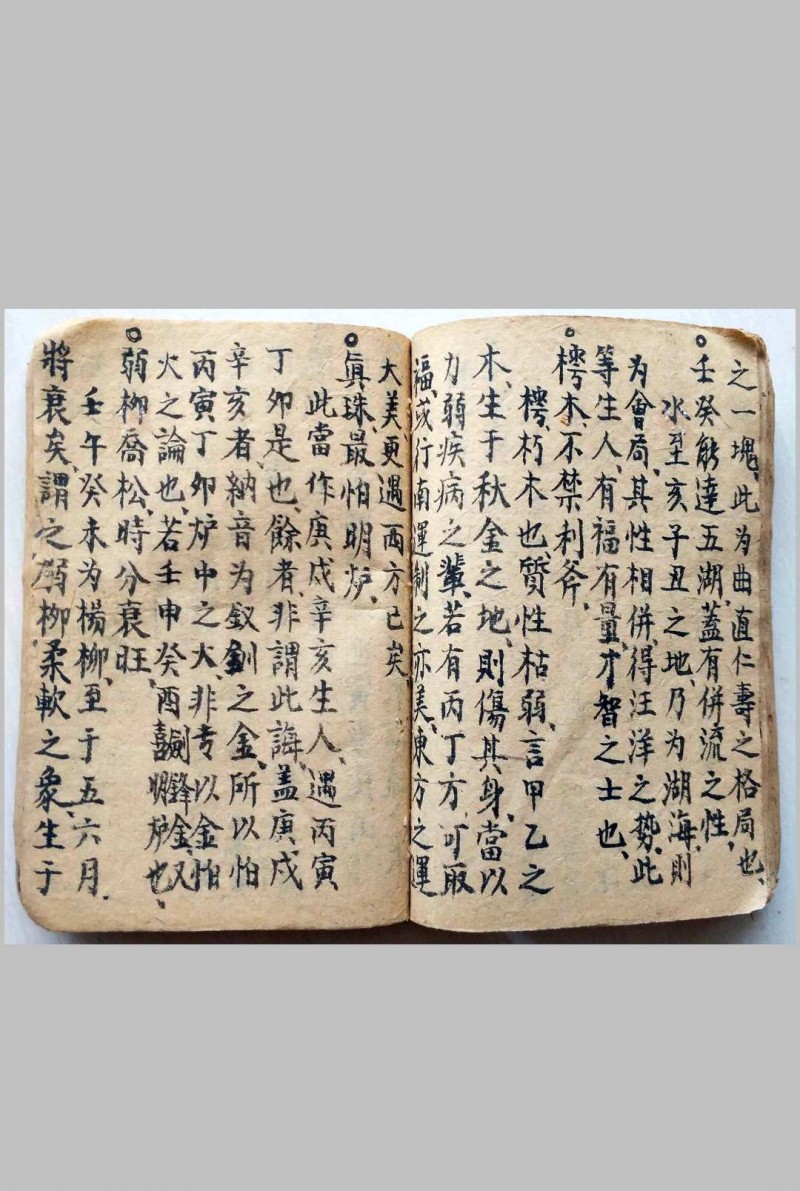 之一塊、此为曲直仁壽之格局也、
壬癸能達五湖、蓋有併流之性、
水至亥子丑之地、乃为湖海、則
为會局、其性相併、得汪洋之势、此
等生人、有福有量、才智之士也、
樗木、不禁利斧、
樗、朽木也、質性枯弱、言甲乙之
木、生于秋金之地、則傷其身、當以
力弱疾病之輩、若有丙丁方、可取
福、或行南運制之亦美、東方之運
大美更遇西方已矣、
眞珠、最怕明炉、
此當作庚戍辛亥生人、遇丙寅
丁卯是也、餘者、非謂此誨、盖庚戍
辛亥者、納音为釵釧之金、所以怕
丙寅丁卯炉中之火、非专以金怕
火之論也、若壬申癸酉、劍鋒金、又喜明炉也、
弱柳喬松、時分衰旺、
壬午癸未为楊柳、至于五六月、
將衰矣、謂之弱柳、柔軟之象、生于